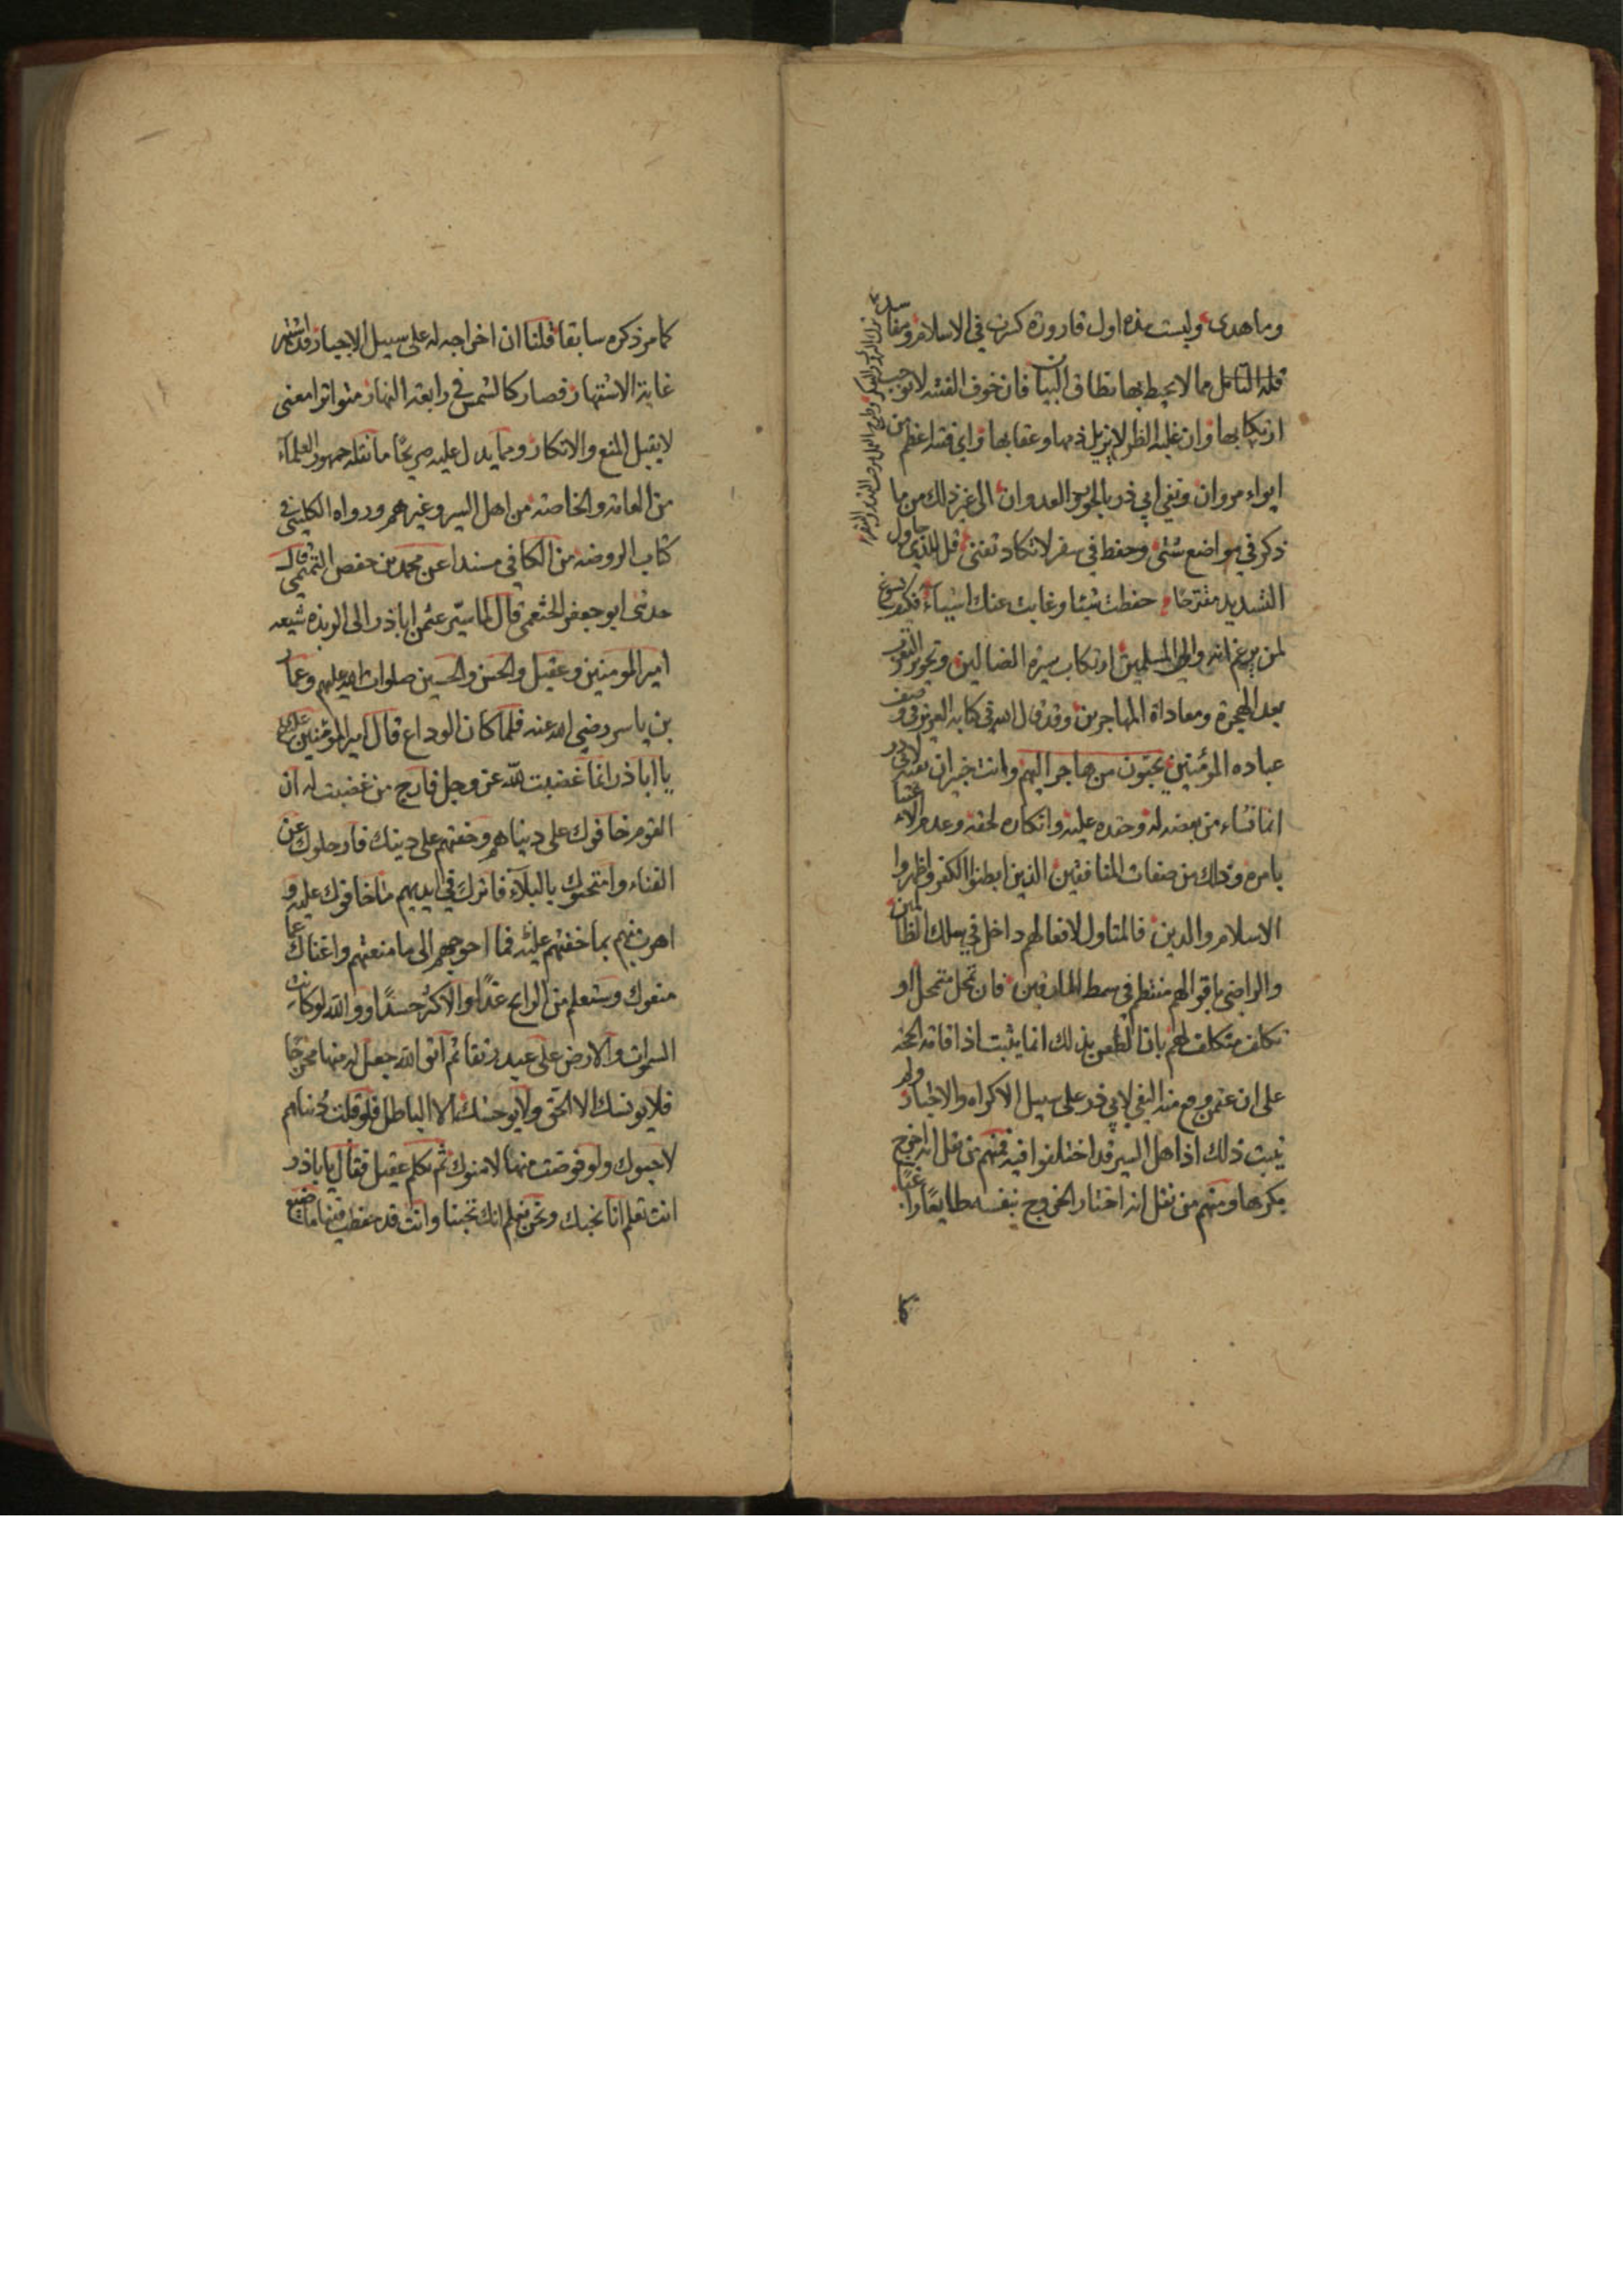 وما هدى وليست هذه اول قارورة كسرت في الاسلام ومفاسد
قلة التامل مما لا يحيط بها نطاق البيان فان خوف الفتنه لا يوجب
ارتكابها وان غلبه الظن لا يزيل ذمها وعقابها واي فتنه اعظم من
ايواء مروان ونفي ابي ذر بالجور والعدوان الى غير ذلك من ما
ذكر في مواضع شتى وحفظ في سفر لا تكاد تفنى قل للذي حاول
التسديد مقترحا حفظت شيئا وغابت عنك اشياء فكيف يسوغ
لمن يزعم انه والى المسلمين ارتكاب سيرة الضالين وتجويز التعرب
بعد الهجرة ومعاداة المهاجرين وقد قال الله في كتابه العزيز في وصف
عباده المؤمنين يحبون من هاجر اليهم وانت خبير ان نفيه لابي ذر
انما نشاء من بغضه له وحقده عليه وانكاره لحقه وعدم الاعتنا
بامره وذاك من صفات المنافقين الذين ابطنوا الكفر واظهروا
الاسلام والدين فالمتاول لافعالهم داخل في سلك الظالمين
والراضي باقوالهم منتظم في سمط المارقين فان تمحل متمحل او
تكلف متكلف لهم بان الطعن بذلك انما يثبت اذا قامة الحجة
على ان عثمن وقع منه النفي لابي ذر على سبيل الاكراه والاجبار ولم
يثبت ذلك اذ اهل السير قد اختلفوا فيه فمنهم من نقل انه اخرج
مكرها ومنهم من نقل انه اختار الخروج بنفسه طايعا راغبا
كا
كما مر ذكره سابقا قلنا ان اخراجه له على سبيل الاجبار قد اشتهر
غاية الاشتهار فصار كالشمس في رابعة النهار متواترا معنى
لا يقبل المنع والانكار ومما يدل عليه صريحا ما نقله جمهور العلماء
من العامة والخاصة من اهل السير وغيرهم ورواه الكليني في
كتاب الروضه من الكافي مسندا عن محمد بن حفص التميمي قال
حدثنى ابو جعفر الخثعمى قال لما سيّر عثمن اباذر الى الربذه شيعه
امير المومنين وعقيل والحسن والحسين صلوات الله عليهم وعمار
بن ياسر رضي الله عنه فلما كان الوداع قال امير المؤمنين علي
يا اباذر انما غضبت لله عز وجل فارج من غضبت له ان
القوم خافوك على دنياهم وخفتهم على دينك فارحلوك عن
الفناء وامتحنوك بالبلاء فاترك في ايديهم ما خافوك عليه و
اهرب منهم بما خفتهم عليه فما احوجهم الى ما منعتهم واغناك عما
منعوك وستعلم من الرابح غدًا والاكثر حسدًا ووالله لو كانت
السموات والارض على عبد رتقا ثم اتقى الله جعل له منها مخرجًا
فلا يونسك الا الحق ولا يوحشك الا الباطل فلو قبلت دنياهم
لاحبوك ولو قرضت منها لامنوك ثم تكلم عقيل فقال يا باذر
انت تعلم انا نحبك ونحن نعلم انك تحبنا وانت قد حفظت فينا ما ضيع